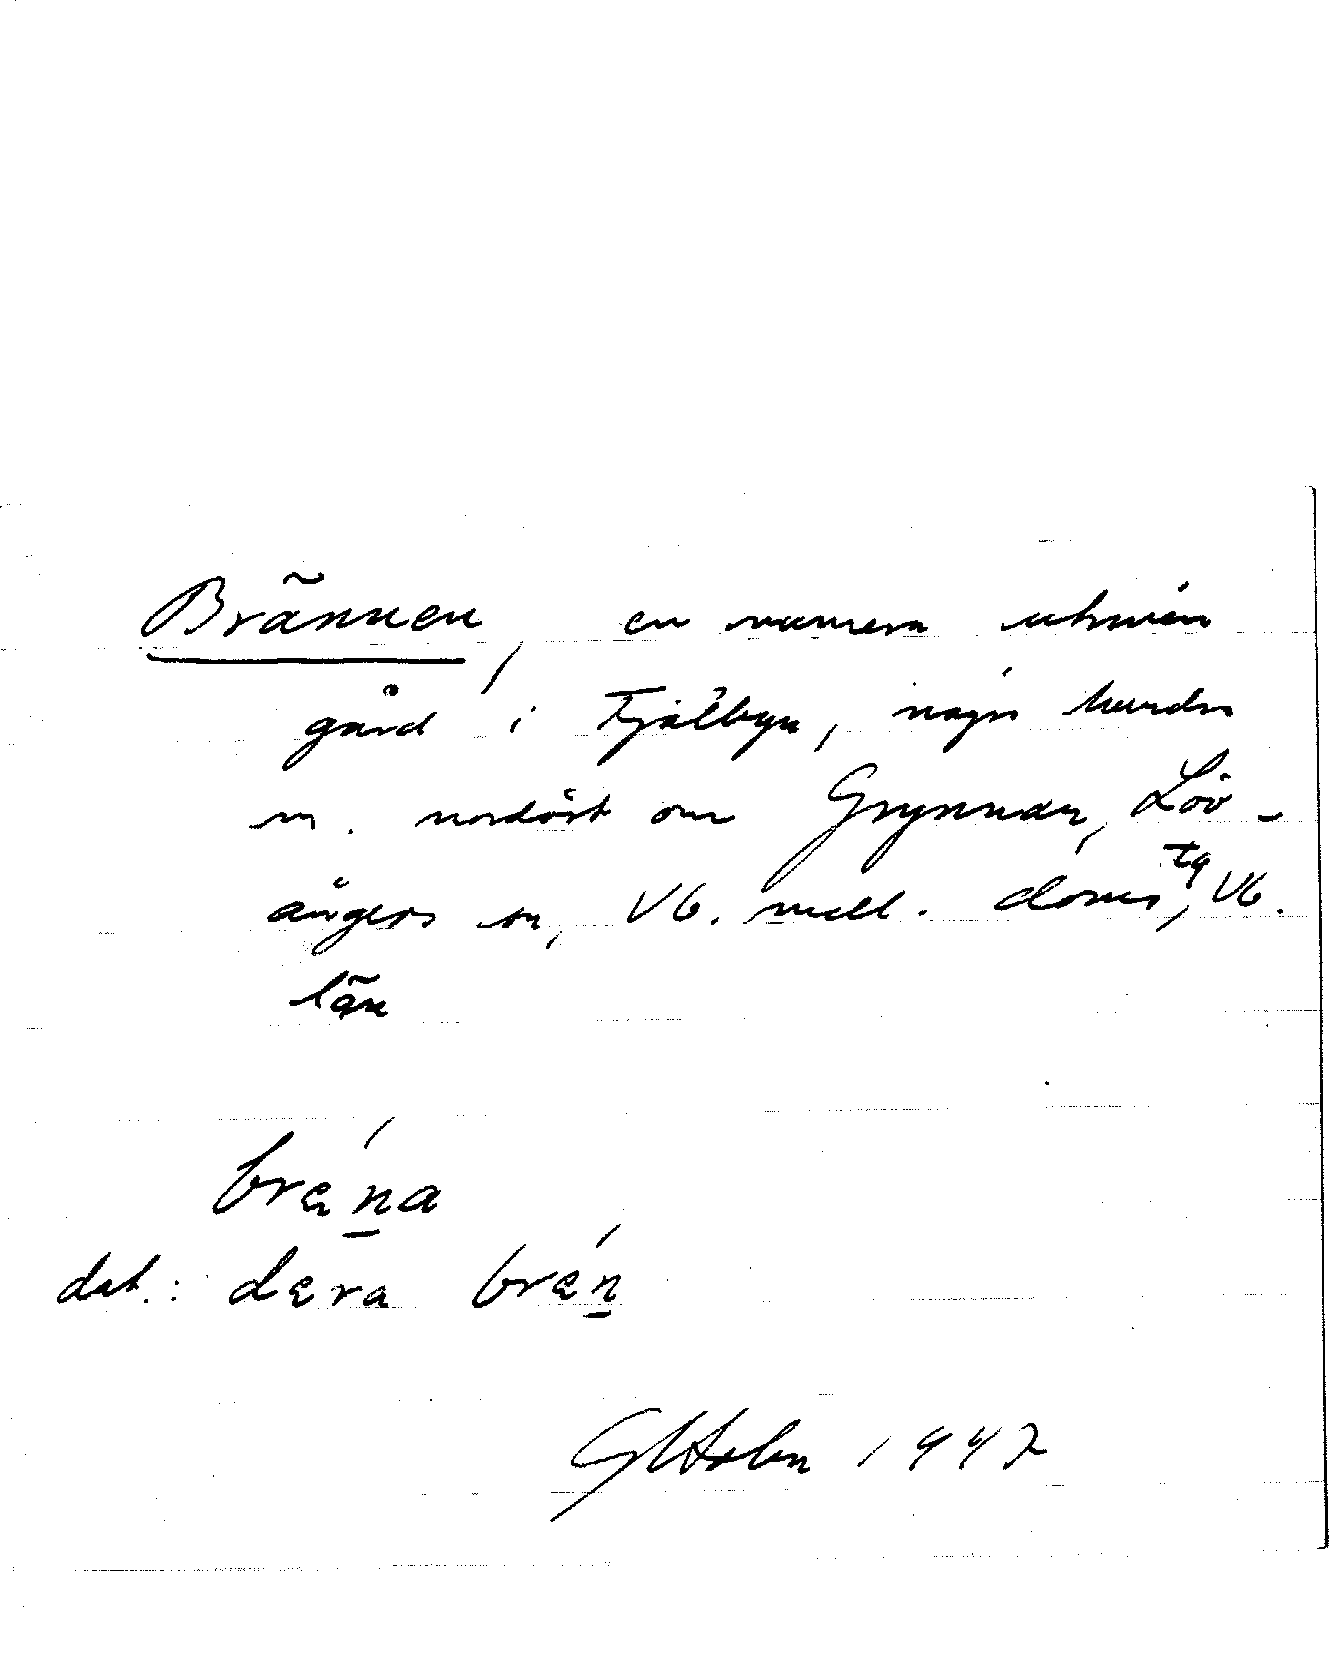 Brännen, en numera utbrien
gård i Fjälbyn, några hundra
m. nordöst om Grynnan, Löv-
ångers sn, Vb. mell. doms tg, Vb.
län
bräṉa
dat.: dära bräṉ
GHolm 1947